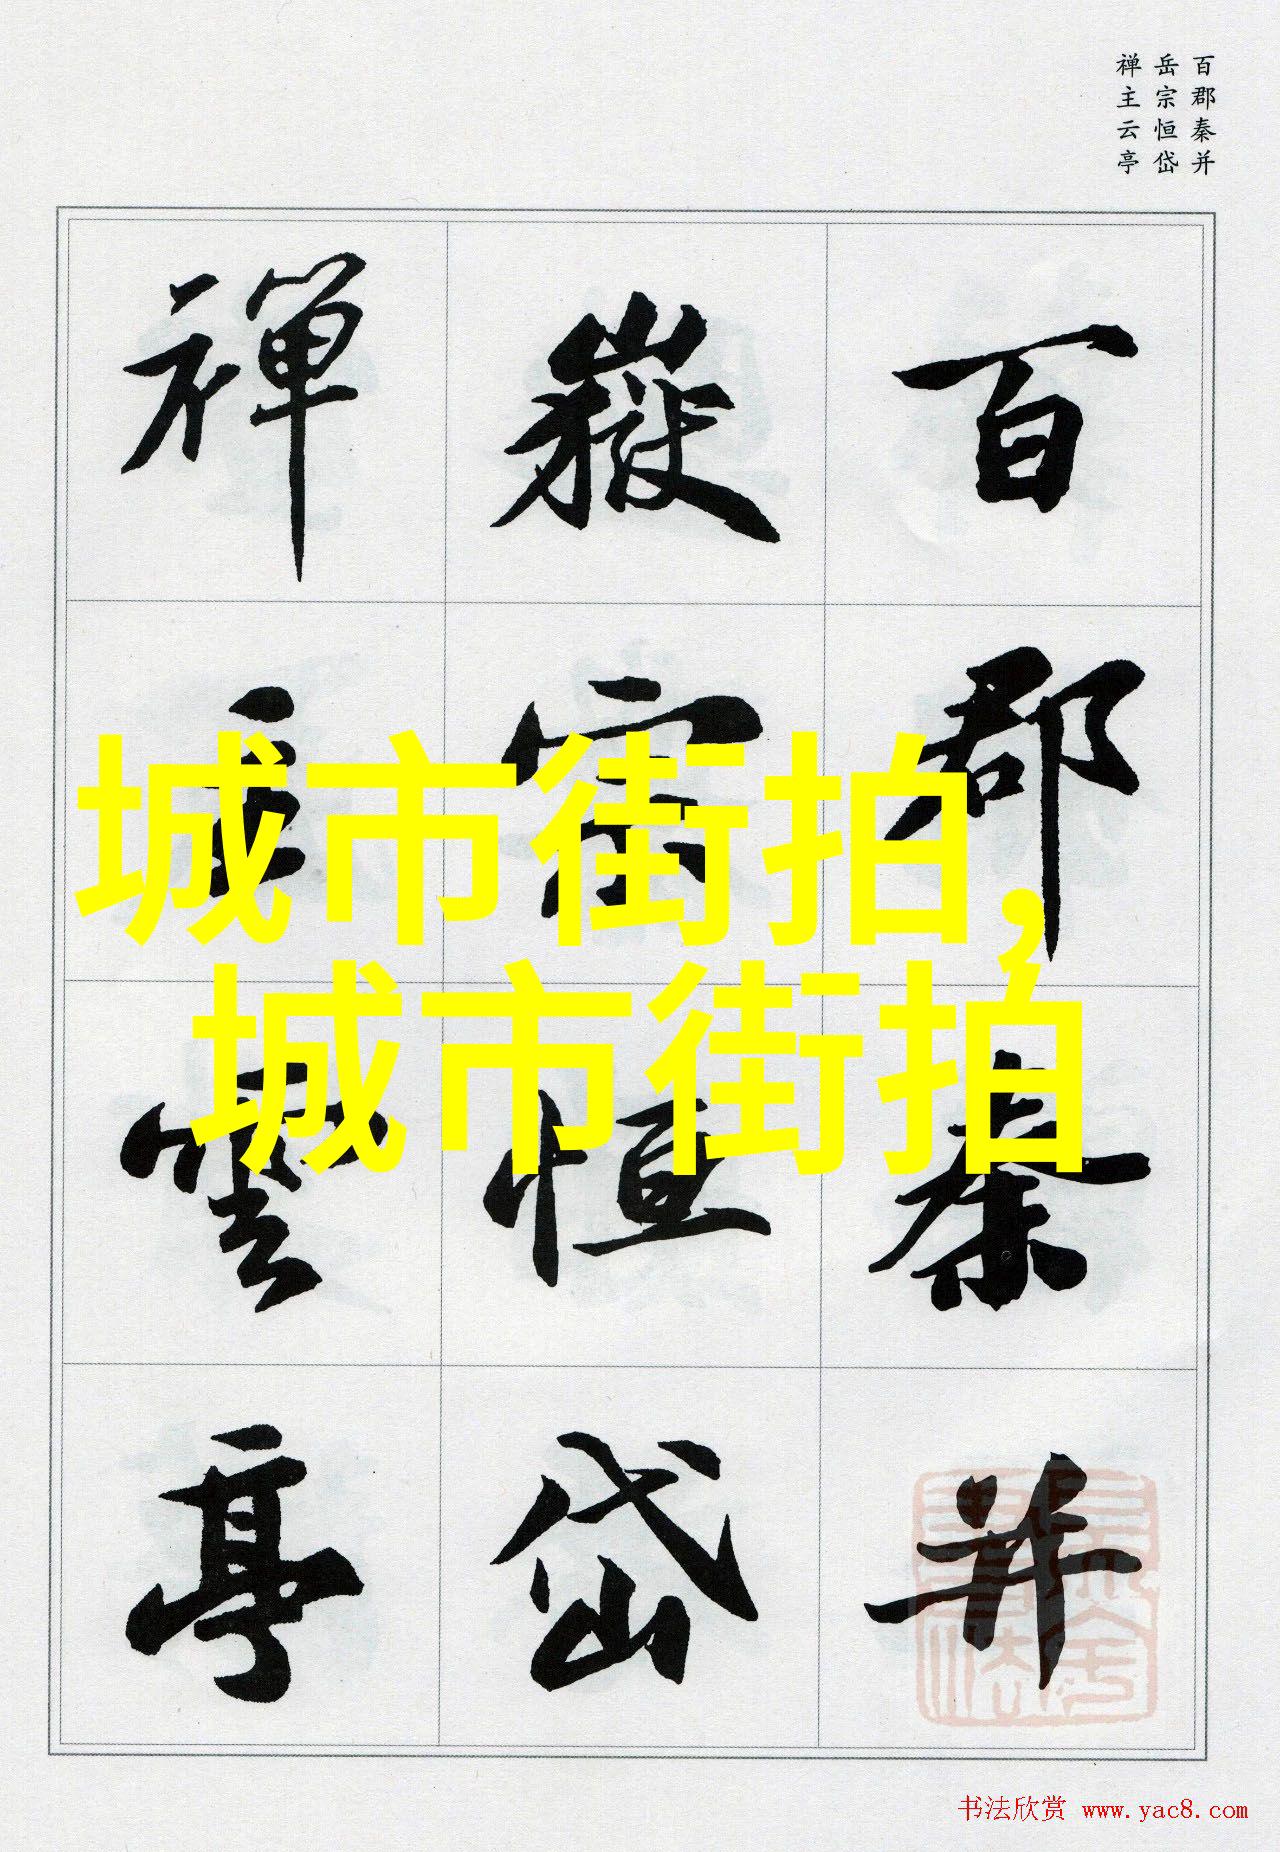 百郡秦并
岳宗恒岱
禅主云亭
百郡秦并
嶽宗恒岱
禪主雲亭
城市街拍,
城市街拍
书法欣赏 www.yac8.com